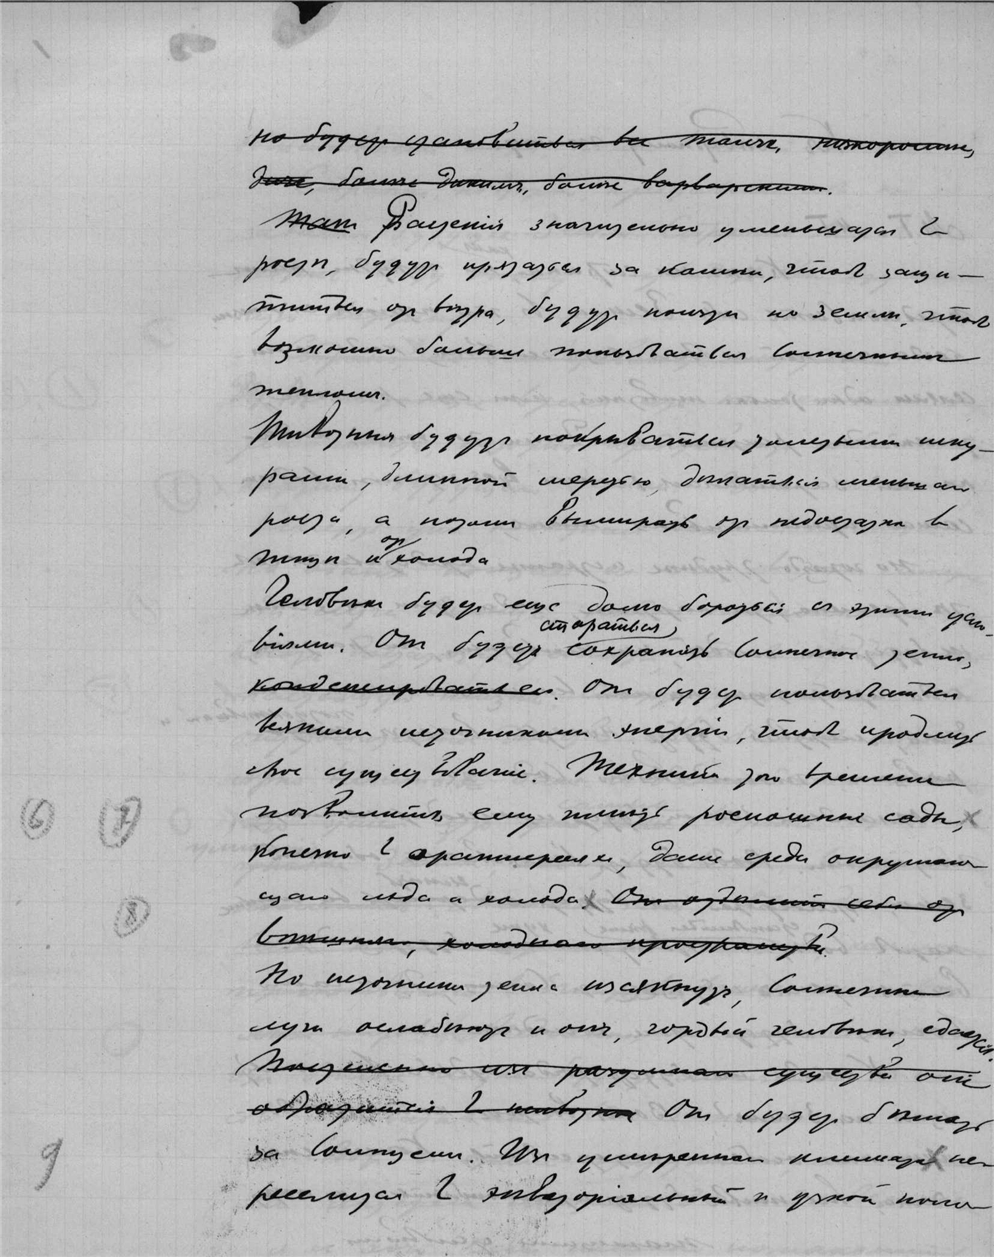 но будут становиться все тоньше, низкорослее,
ниже, более дикими, более варварскими.
Растенія значительно уменьшатся в
росте, будут прятаться за камни, чтоб защи-
титься от ветра, будут ползти по земле, чтоб
возможно больше пользоваться солнечным
теплом.
Животныя будут покрываться толстыми шку-
рами, длинной шерстью, делаться меньшаго
роста, а потом вымирать от недостатка в
пищи и от холода
Человек будет еще долго бороться с этими усло-
віями. Он будет стараться сохранять солнечное тепло,
конденсировать его. Он будет пользоваться
всякими источниками энергіи, чтоб продлить
свое существованіе. Техника того времени
позволит ему иметь роскошные сады,
конечно в оранжереях, даже среди окружаю-
щаго льда и холода. Он отделит себя от
внешняго, холоднаго пространства.
Но источники тепла изсякнут, солнечные
лучи ослабнут и он, гордый человек, сдастся.
Постепенно из разумнаго существа он
обратится в животное Он будет бежать
за солнцем. Из умереннаго климата пе-
реселится в экваторіальный и узкой поло
6 7
8
9